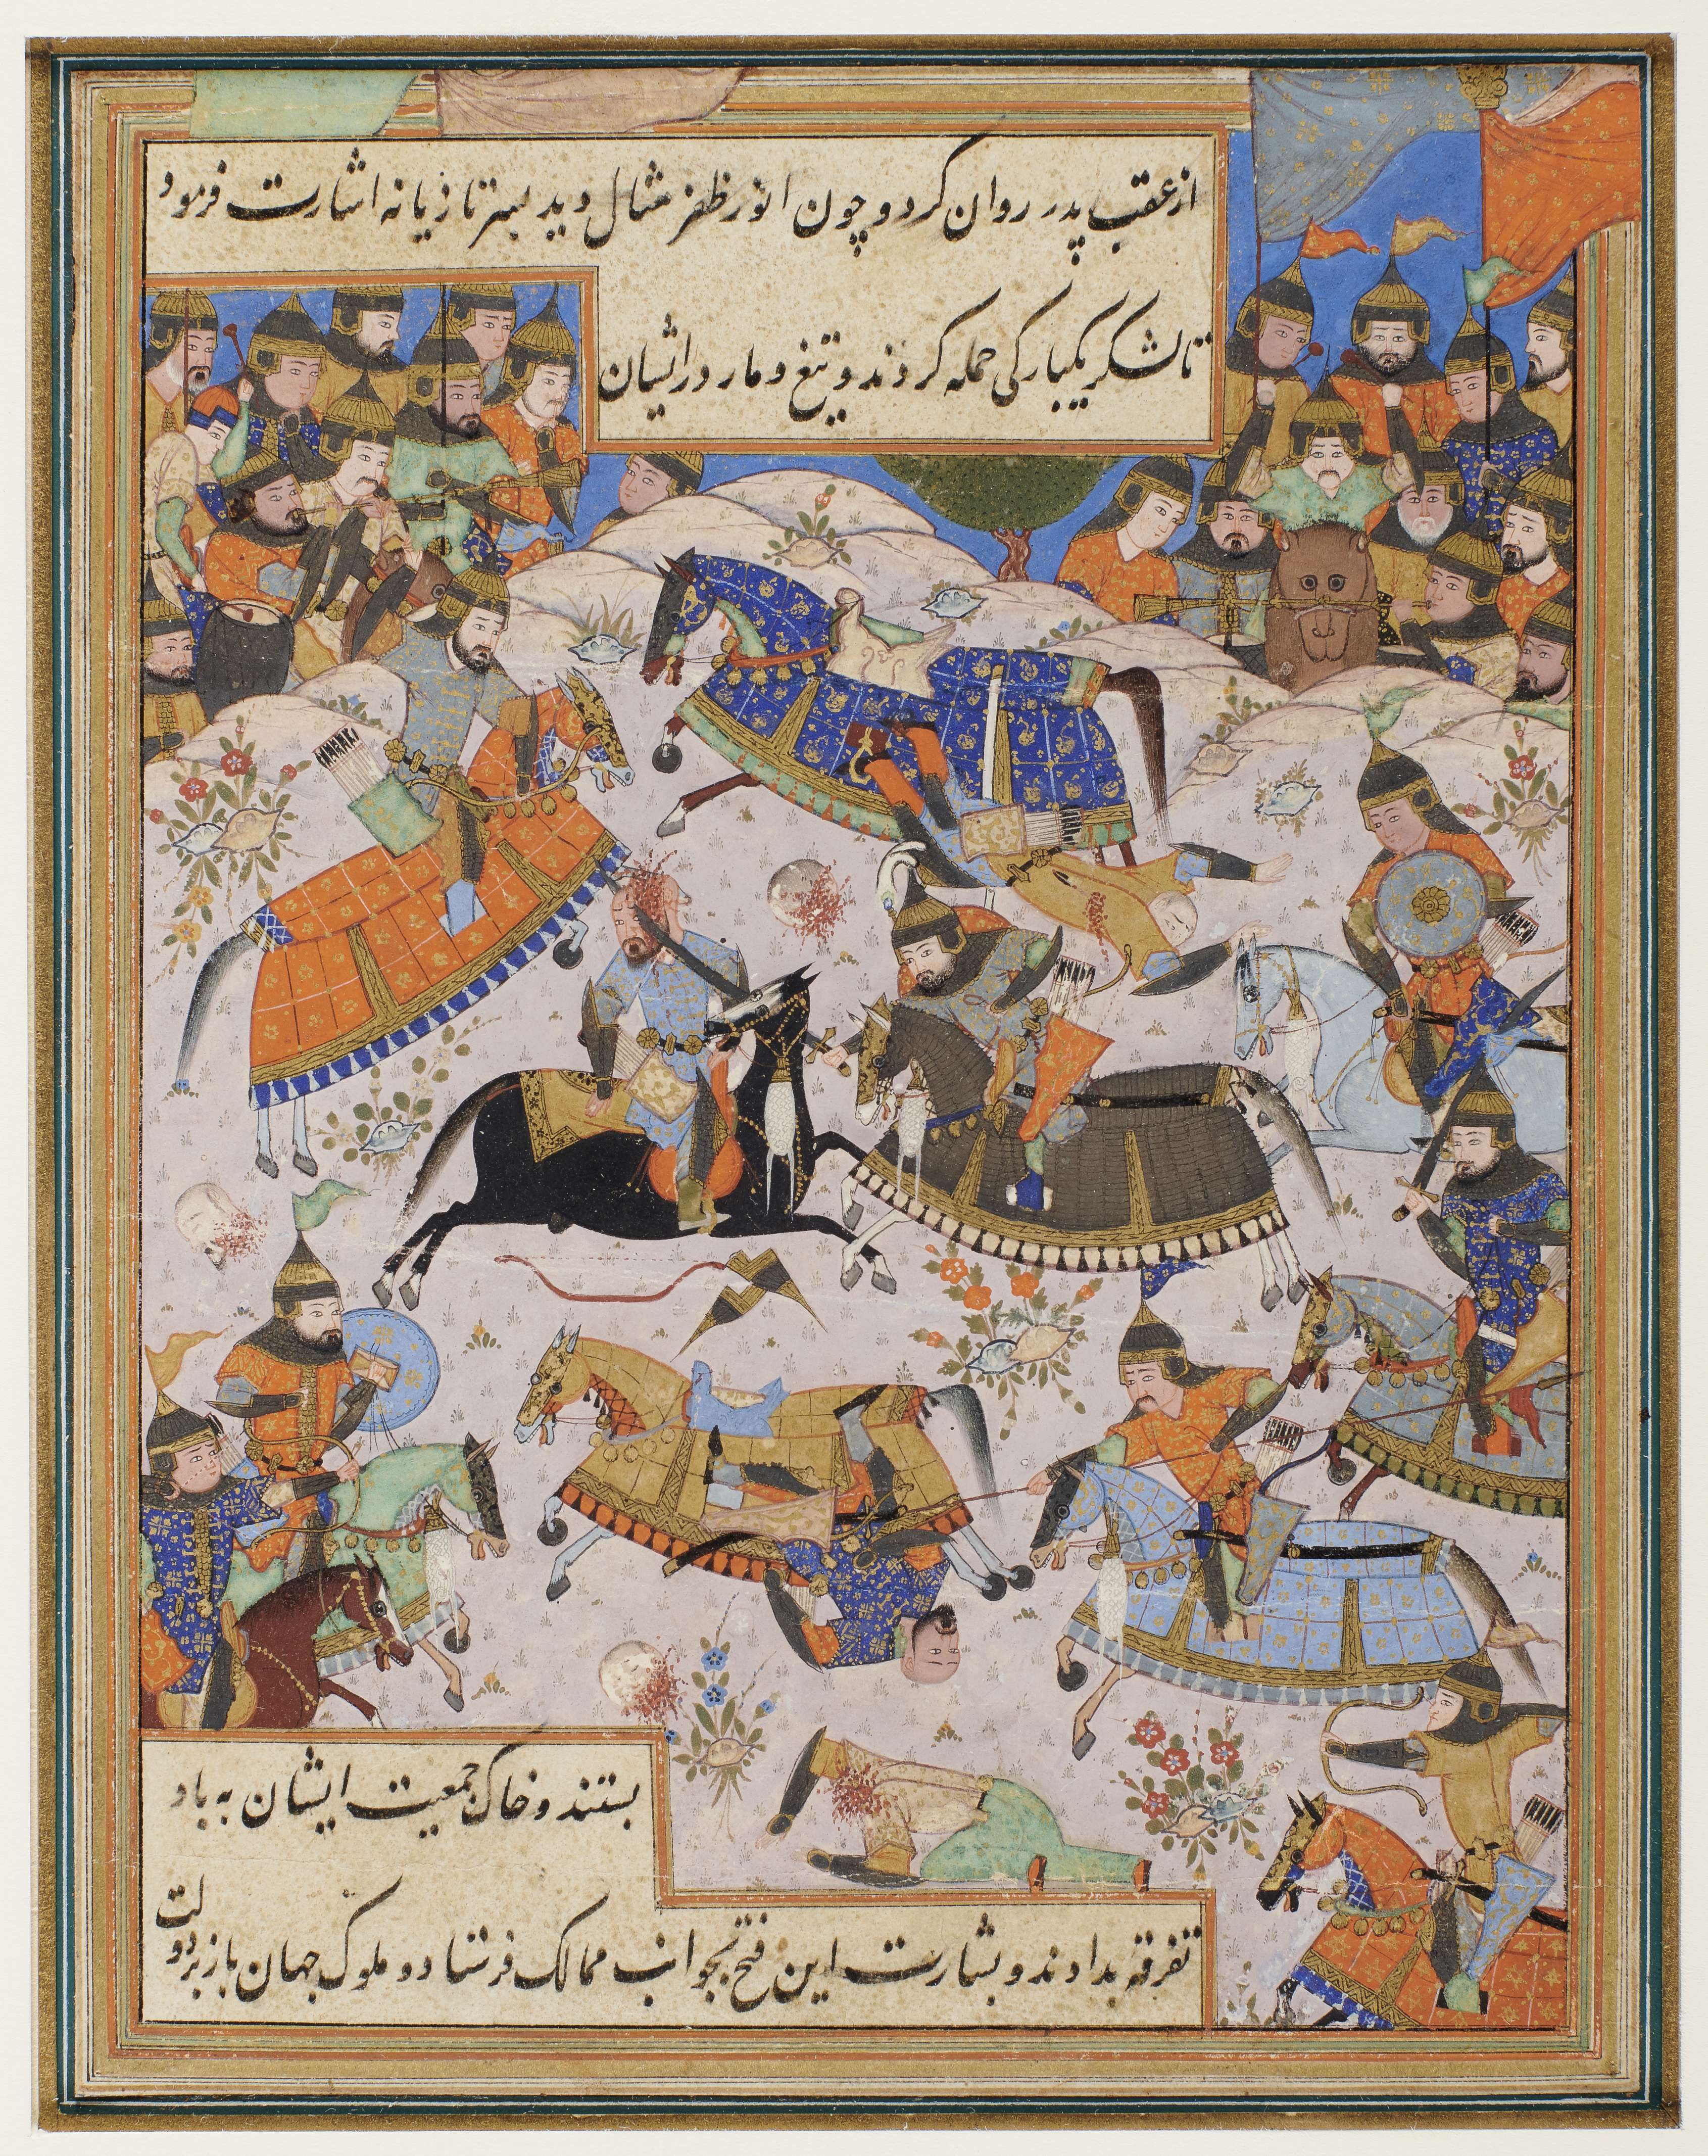 از عقب پدر روان کرد و چون انوار ظفر مثال دید بسر تازیانه اشارت فرمود
تا لشکر یکبارکی حمله کردند و تیغ و مار در ایشان
بستند و خاک جمعیت ایشان به باد
تفرقه بدادند و بشارت این فتح بجوانب ممالک فرستاد و ملوک جهان باز بر دولت